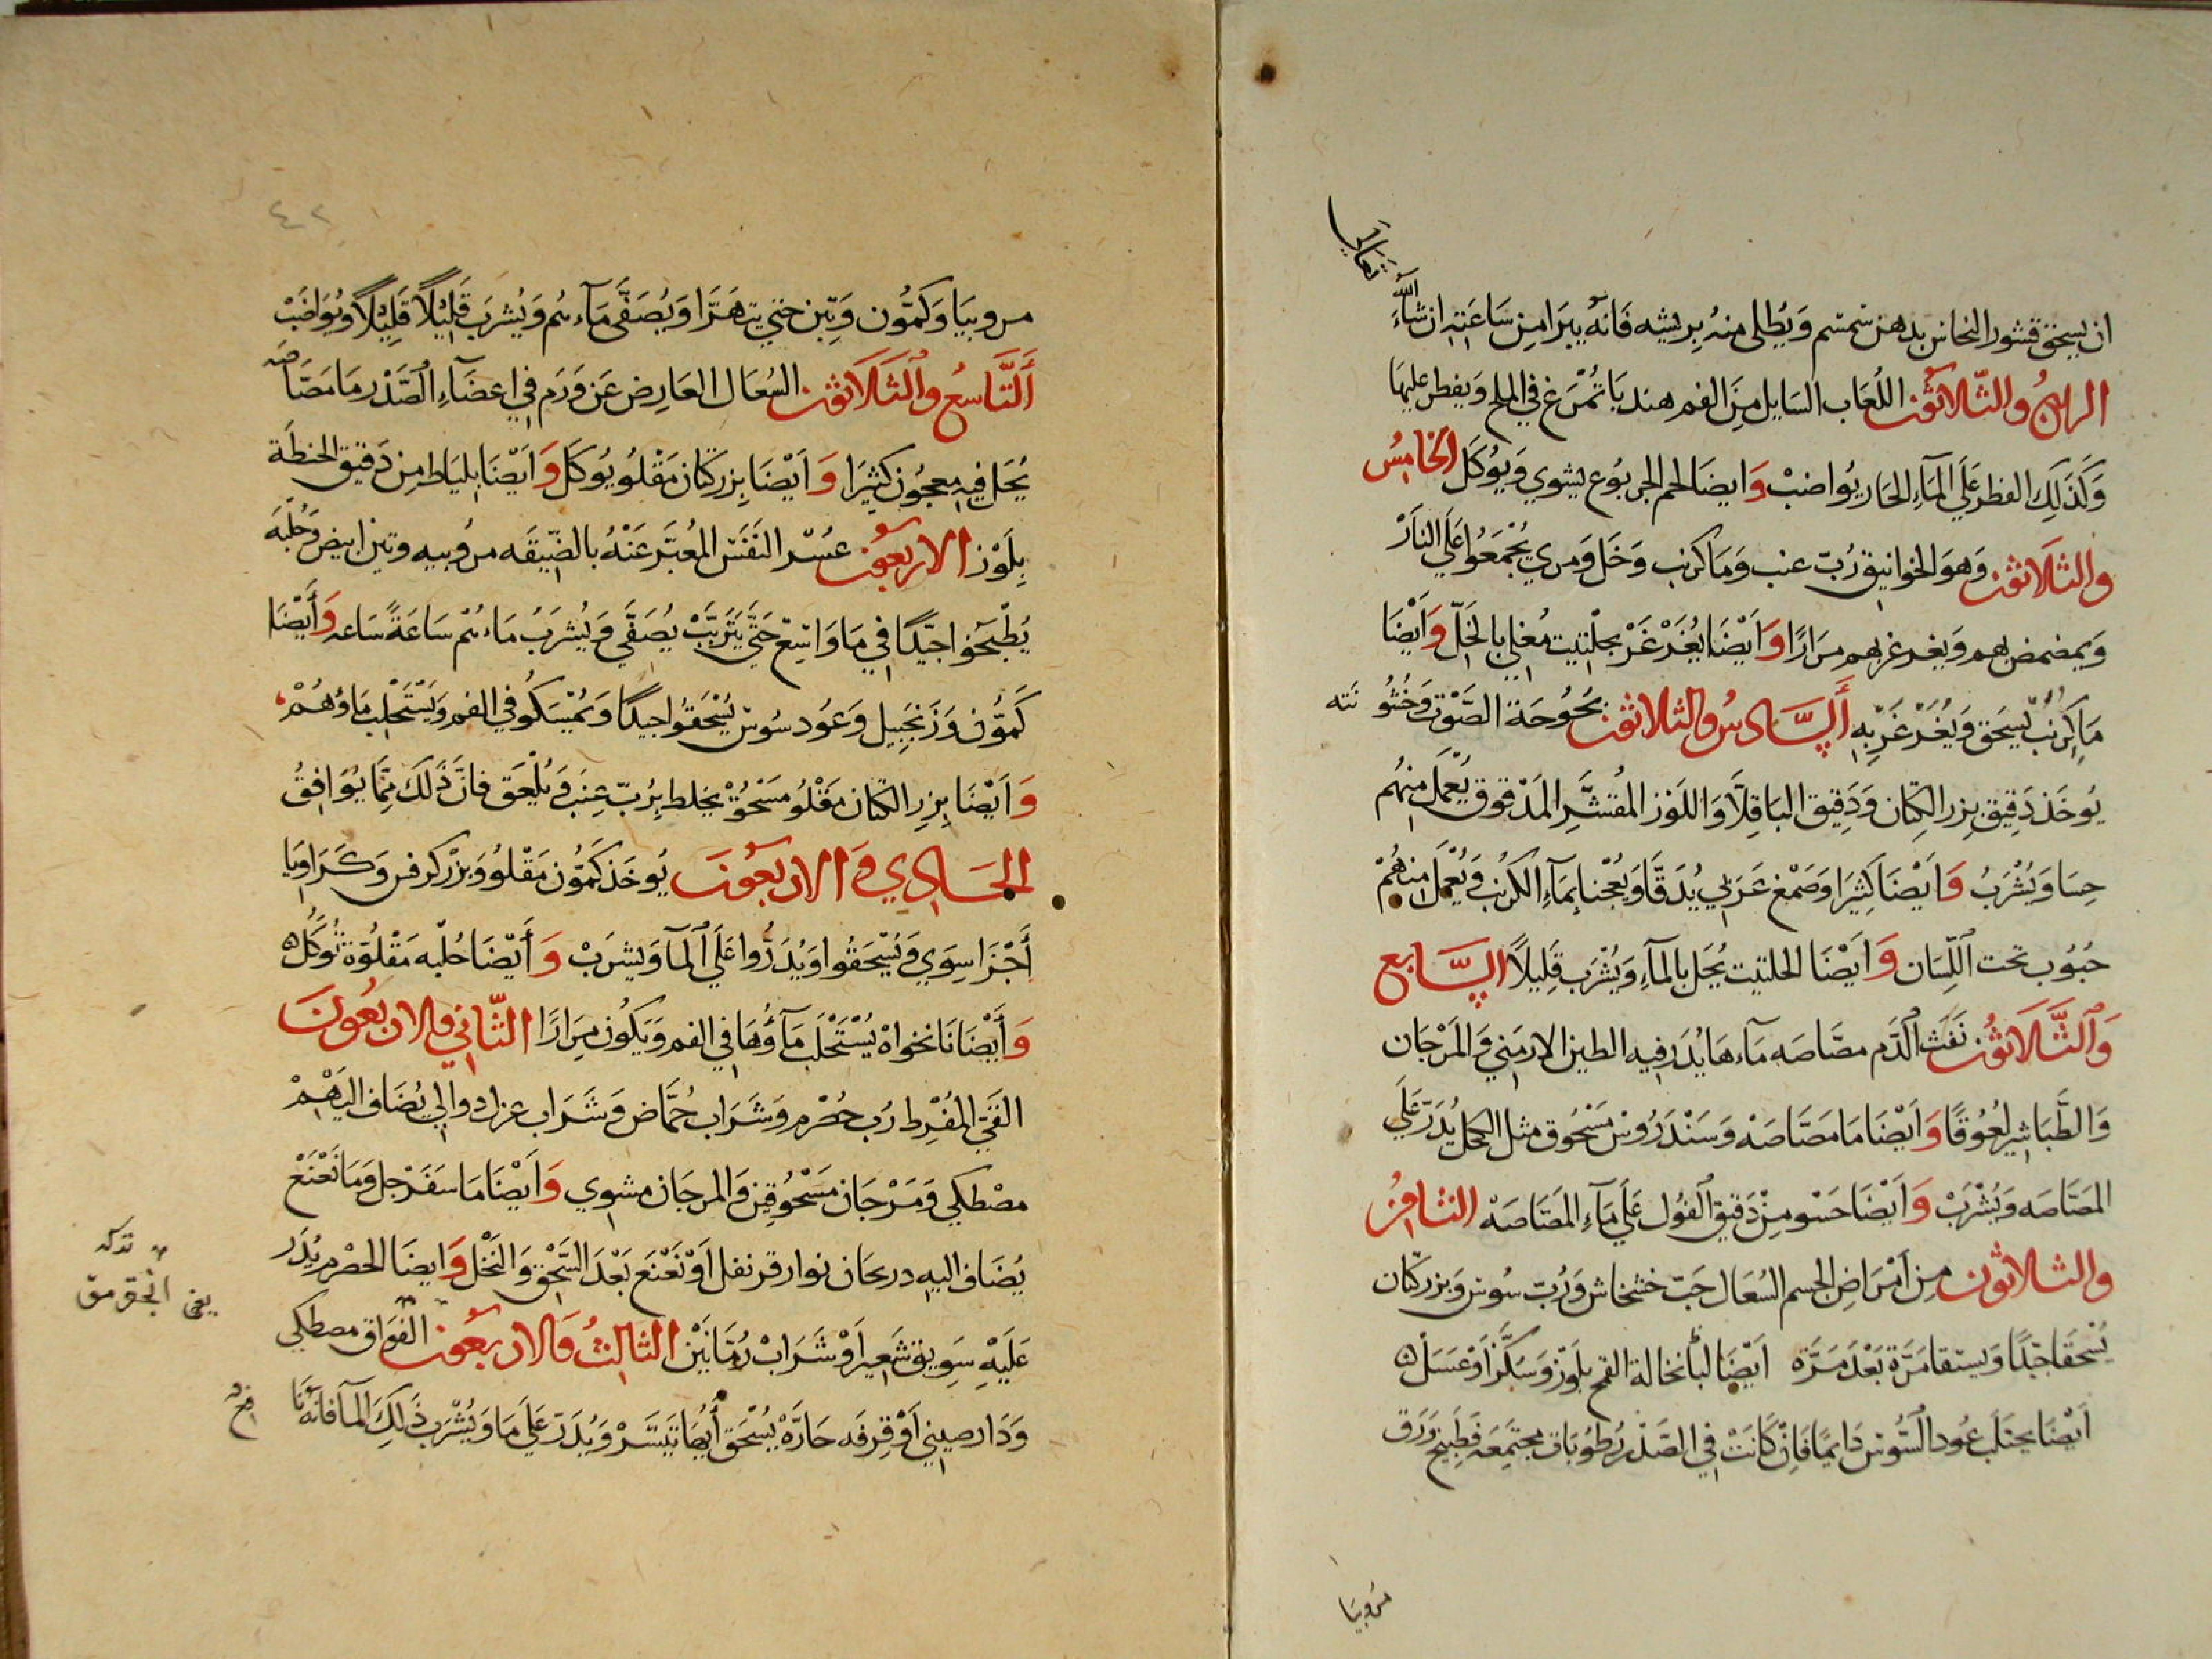 تعالى
ان يسحق قشور النحاس بدهن سمسم ويطلى منه بريشه فانه يبرا من ساعته ان شاء الله
الرابع والثلاثون اللعاب السايل من الفم هنديا تمرغ في الملح ويفطر عليها
وكذلك الفطر على المآء الحار يواضب وايضا لحم الجربوع يشوي ويوكل الخامس
والثلاثون وهو الخوانيق رب عنب وما كرنب وخل ومري يجمعوا على النار
ويمضمض بهم ويغرغر بهم مرارا وايضا يغرغر بحلتيت مغلي بالخل وايضا
ما كرنب يسحق ويغرغر به السادس والثلاثون بحوحة الصوت وخشو نته
يوخذ دقيق بزر الكتان ودقيق الباقلا واللوز المقشر المدقوق يعمل منهم
حسا ويشرب وايضا كثيرا وصمغ عربي يدقا ويعجنا بمآء الكرنب ويعمل منهم
حبوب تحت اللسان وايضا الحلتيت يحل بالمآء ويشرب قليلا السابع
والثلاثون نفث الدم مصاصه مآءها يدر فيه الطين الارمني والمرجان
والطباشير لعوقا وايضا ما مصاصه وسندروس مسحوق مثل الكحل يدر على
المصاصه ويشرب وايضا حسو من دقيق الفول على مآء المصاصه الثامن
والثلاثون من امراض الجسم السعال حب خشخاش ورب سوس وبزر كتان
يسحقا جيدا ويستقا مرة بعد مرة ايضا لباب نخالة القمح بلوز وسكر او عسل
ايضا يحتلب عود السوس دايما فان كانت في الصدر رطوبات مجتمعه فطبيخ ورق
مروبيا
٤٢
مروبيا وكمون وتين حتي يتهرا ويصفى مآءهم ويشرب قليلا قليلا ويواضب
التاسع والثلاثون السعال العارض عن ورم في اعضآء الصدر ما مصاصه
يحل فيه معجون كثيرا وايضا بزر كتان مقلو يوكل وايضا بلياط من دقيق الحنطة
بلوز الاربعون عسر النفس المعبر عنه بالضيقه مروبيه وتين ابيض وحلبه
يطبخوا جيدا في ما واتيع حتى يتربب يصفي ويشرب ماءهم ساعة ساعه وأيضا
كمون وزنجبيل وعود سوس يسحقوا جيدا ويمسكو في الفم ويستحلب ماؤهم
وايضا بزر الكتان مقلو مسحوق يخلط برب عنب ويلعق فان ذلك مما يوافق
الحادي والاربعون يوخذ كمون مقلو وبزر كرفس وكراويا
أجزا سوي ويسحقوا ويدروا على المآ ويشرب وأيضا حلبه مقلوة توكل
وأيضا نانخواه يستحلب مآؤها في الفم ويكون مرارا الثاني والاربعون
القي المفرط رب حصرم وشراب حماض وشراب عزل دوالي يضاف اليهم
مصطكي ومرجان مسحوقين والمرجان مشوي وايضا ما سفرجل وما نعنع
يضاف اليه درعان نوار قرنفل او نعنع بعد السحق والنخل وايضا الحصرم يدر
عليه سويق شعير او شراب رمانين الثالث والاربعون الفواق مصطكي
ودارصيني او قرفه حاره يسحق أيها تيسر ويدر على ما ويشرب ذلك المآ فانه نا
فع
تذكه
يعني انجقرمق